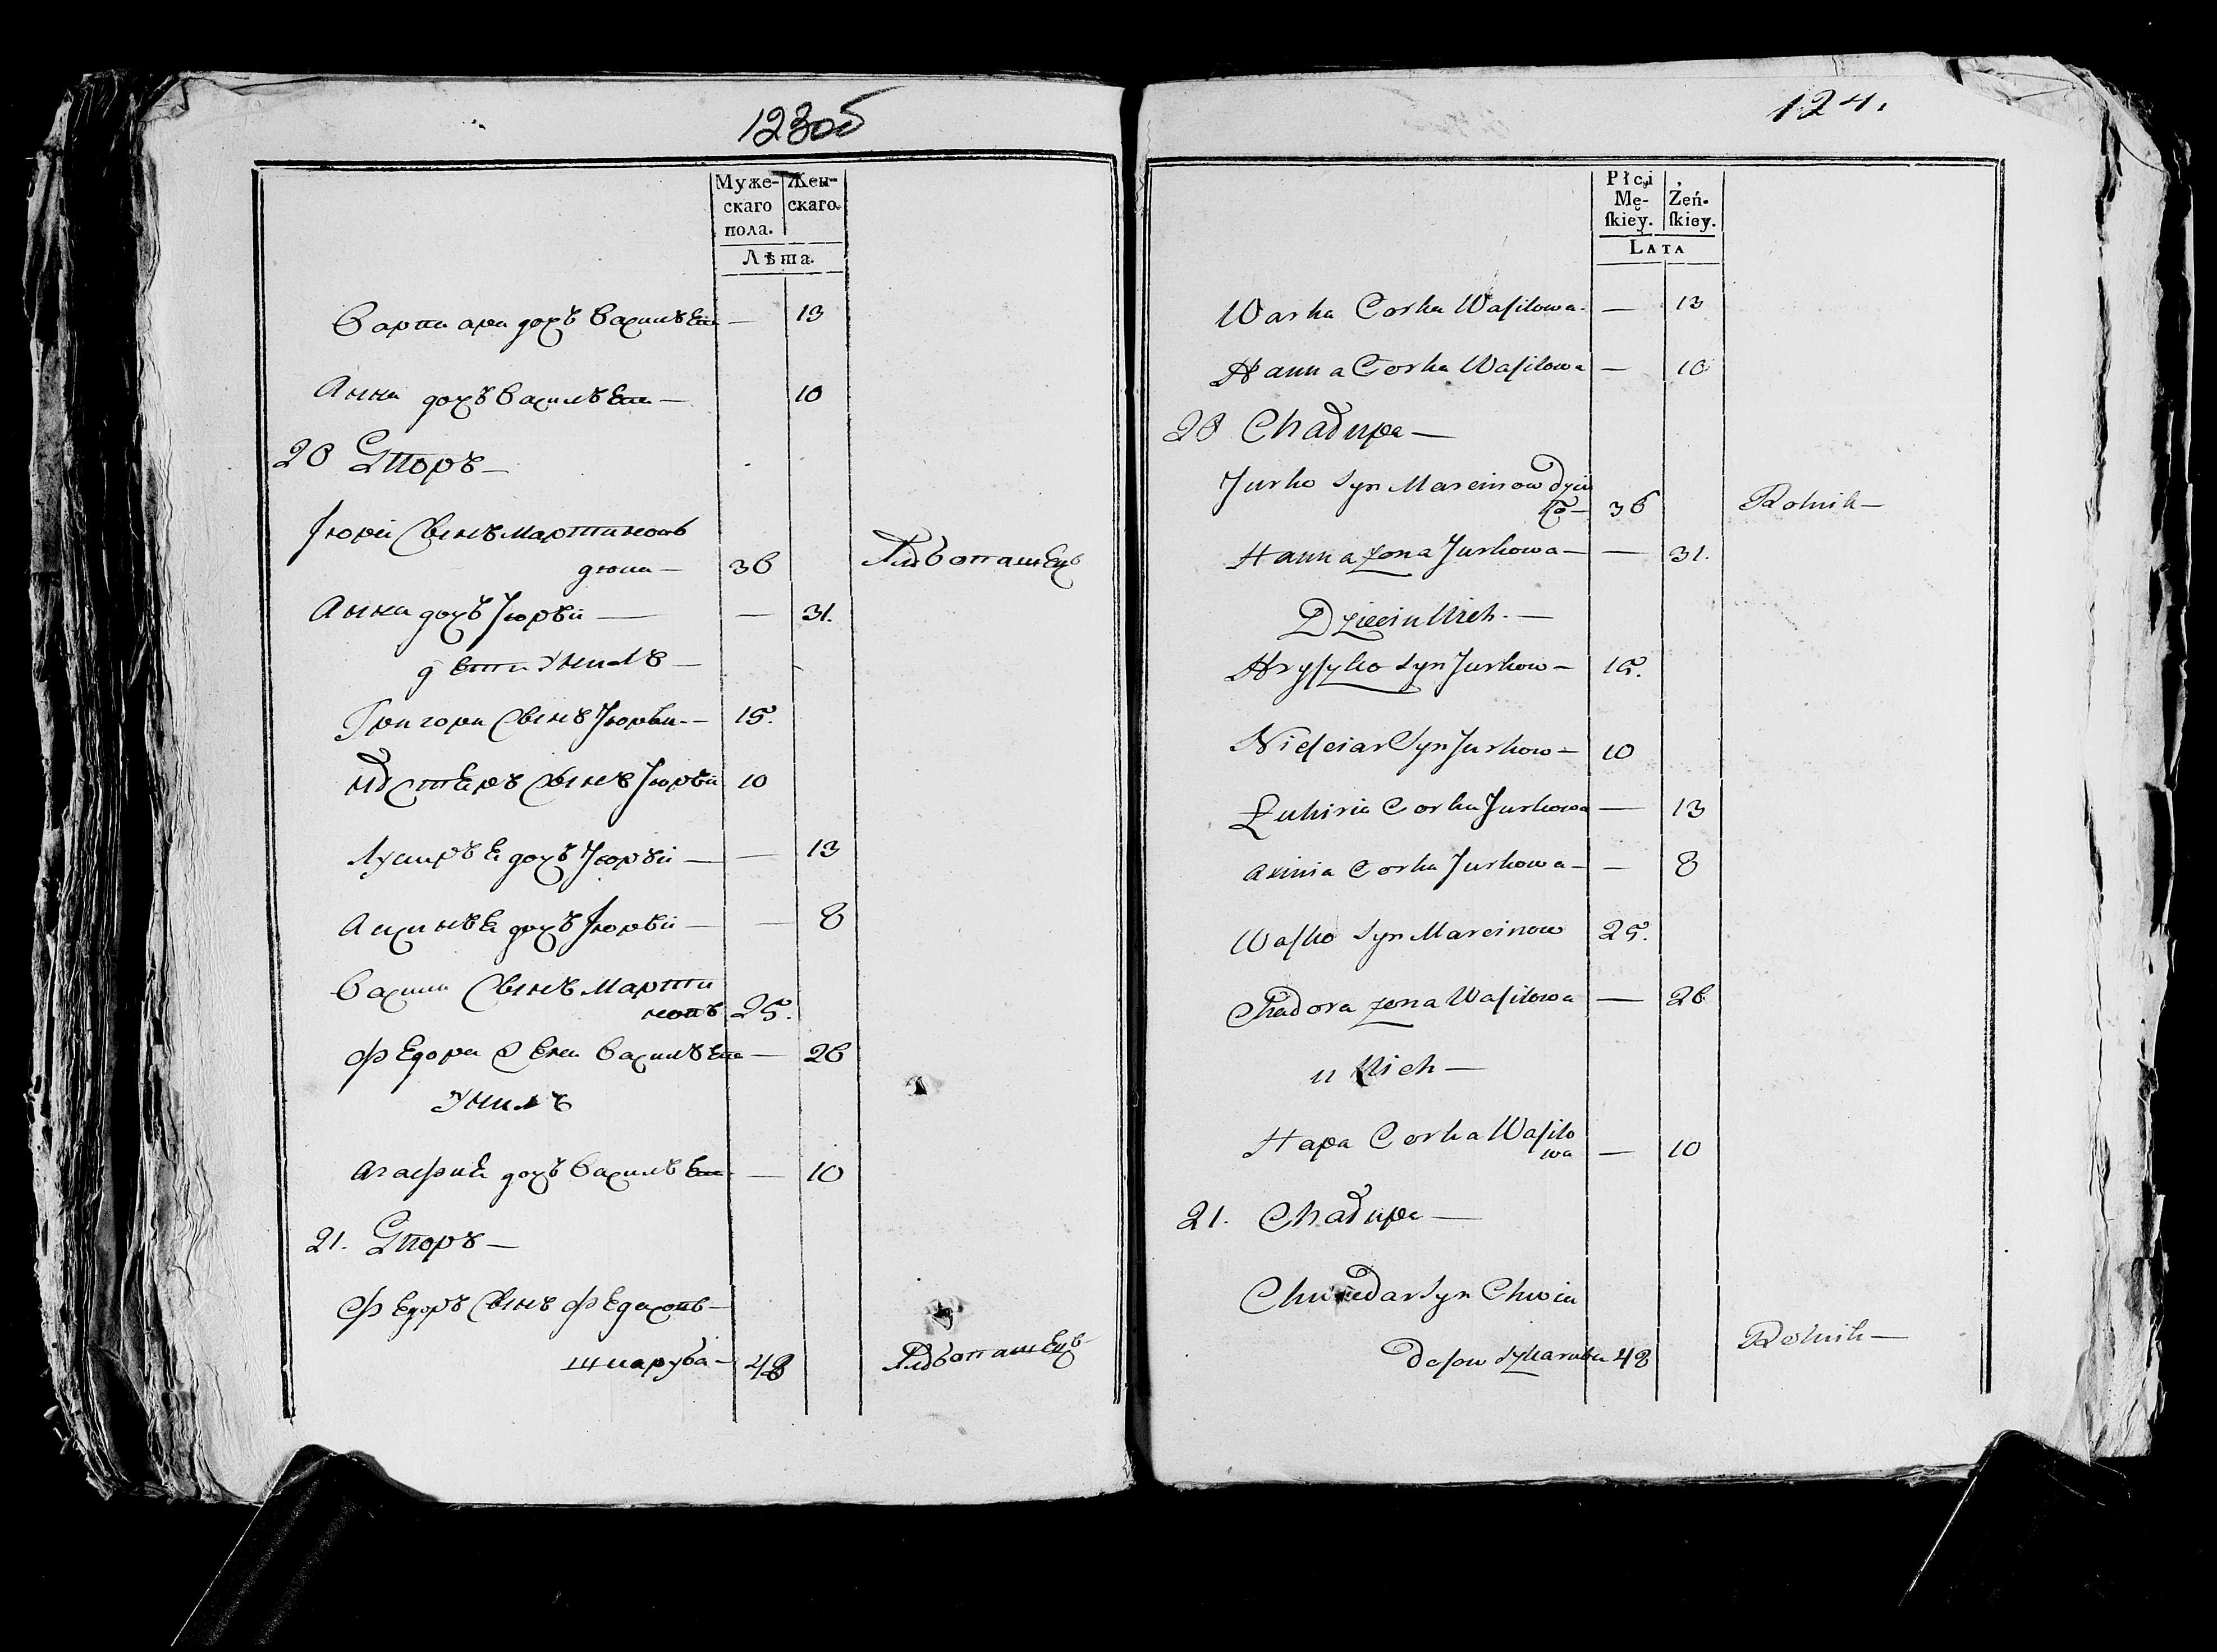 123об
Муже-
скаго
пола.
Жен-
скаго.
Лѣта.
Варвара дочъ Василѣва — 13
Анна дочъ Василѣва — 10
20 Дворъ —
Юрій Сынъ Мартиновъ
36
Анна Юрѣй — — 31.
дети У нихъ —
Григори Сынъ Юрѣи — 15.
Нестеръ Сынъ Юрѣй 10
дочъ Юрѣй — — 13
дочъ Юрѣй — — 8
Васили Сынъ Марти
новъ 25.
Федора Жена Василѣва — 26
У нихъ
Агафия дочъ Василѣва — 10
21. Дворъ —
Федоръ Сынъ
шкаруба — 48
124.
Płci
Mę-
ſkiey.
Żeń-
ſkiey.
LATA
Warka Corka Waſilowa — 13
Hanna Corka Waſilowa — 10
20 Chałupa —
Jurko Syn Marcinow Dziu
ko — 36 Rolnik —
Hanna zona Jurkowa — — 31.
Dzieci u Nich —
Hryſzko Syn Jurkow — 15.
Nieſciar Syn Jurkow — 10
Łukiria Corka Jurkowa — 13
Axinia Corka Jurkowa — — 8
Waſko Syn Marcinow 25.
Chadora zona Waſilowa — 26
u Nich —
Hapa Corka Waſilo
wa — 10
21. Chałupa —
Chwiedar Syn Chwie
deſow Szkaruba 48 Rolnik —